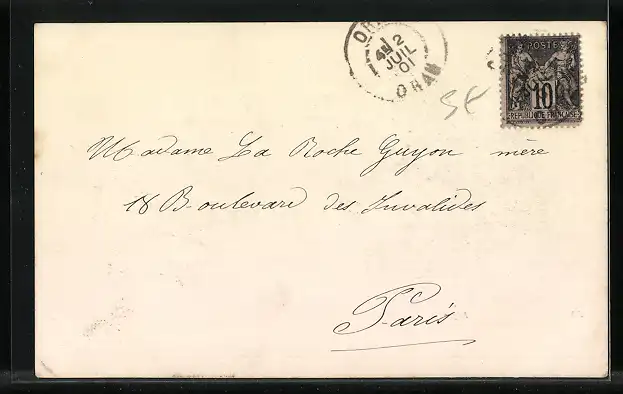 ORAN
4E 2
JUIL
01
ORAN
POSTE
10
REPUBLIQUE FRANÇAISE
Madame La Roche Guyon mère
18 Boulevard des Invalides
Paris